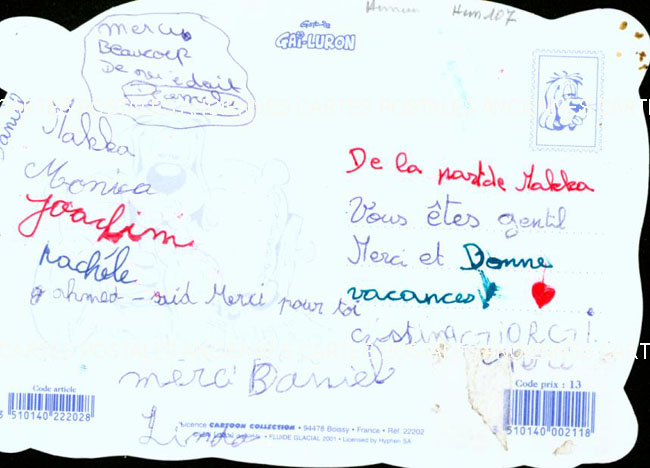 Merci
Beaucoup
De
Gai-Luron
GAÏ-LURON
Daniel
Makka
Monica
Joachim
Rachéle
ahmed - said Merci pour toi
De la part de Makka
Vous êtes gentil
Merci et Bonne
vacances
cristina GIORGI
merci Daniel
Code article
3 510140 222028
Licence CARTOON COLLECTION • 94478 Boissy • France • Réf. 22202
• FLUIDE GLACIAL 2001 • Licensed by Hyphen SA
Code prix : 13
510140 002118